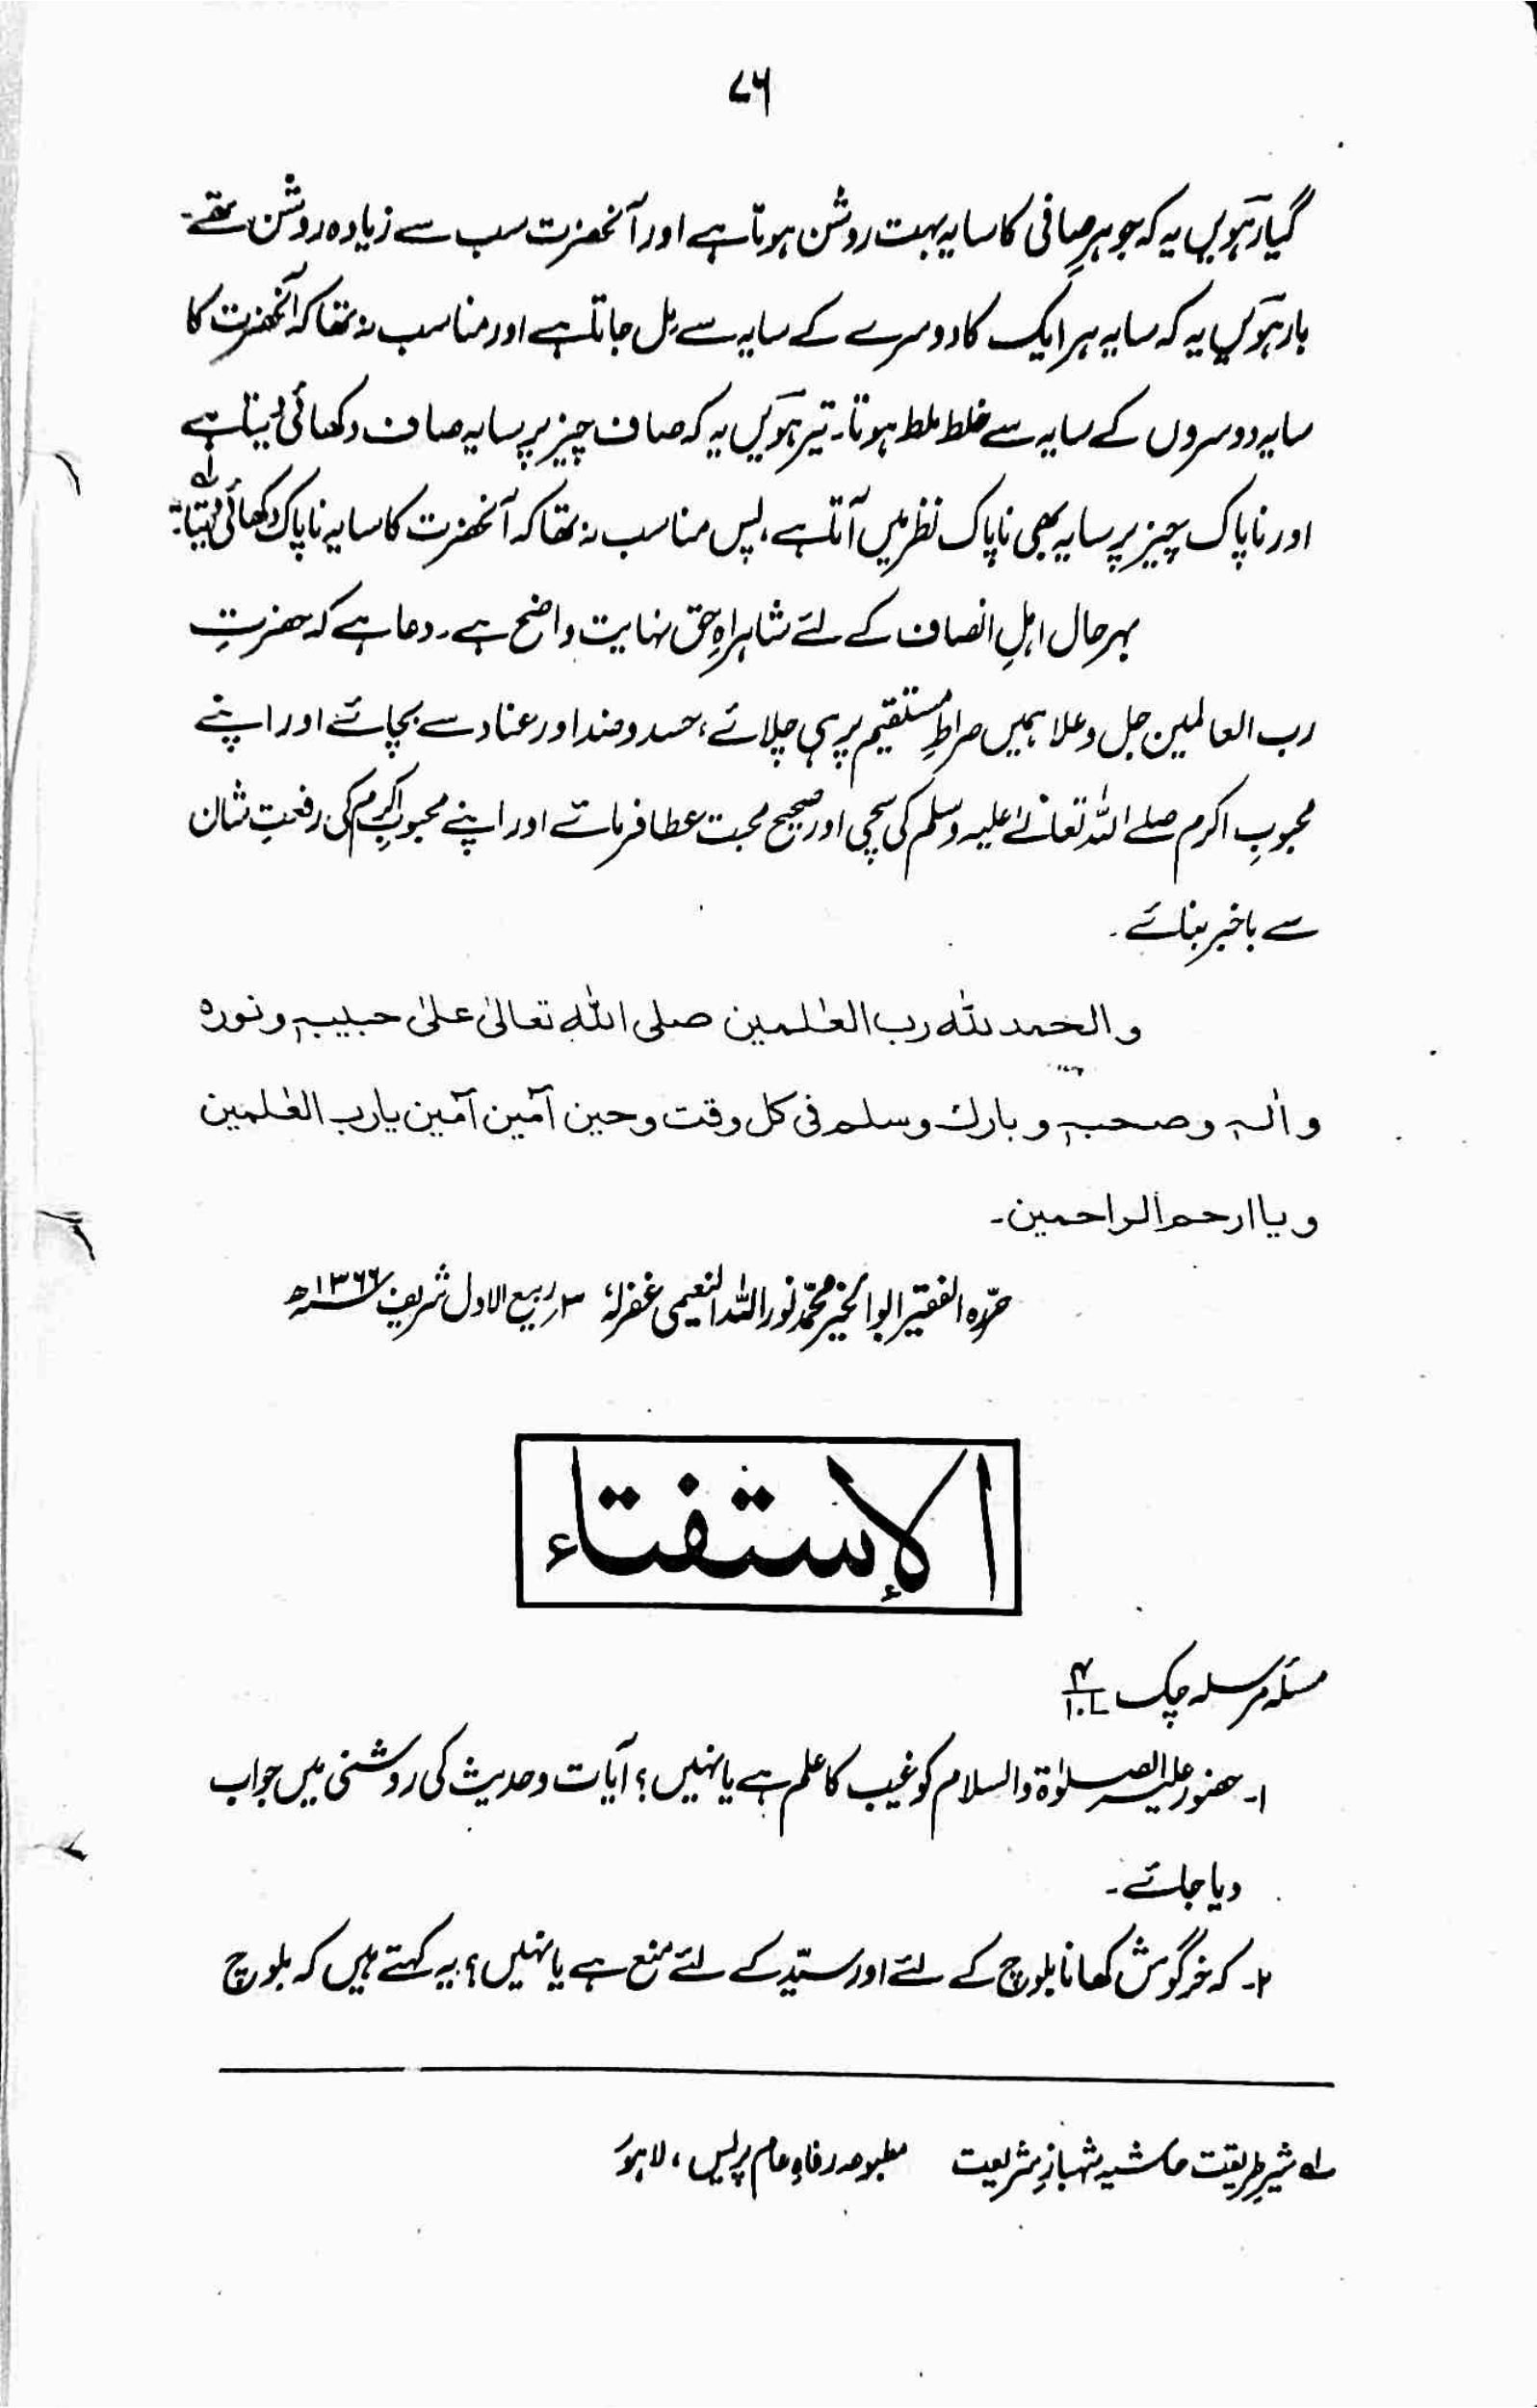 ۷۶
گیارہویں یہ کہ جوہرِ صافی کا سایہ بہت روشن ہوتا ہے اور آنحضرت سب سے زیادہ روشن تھے۔
بارہویں یہ کہ سایہ ہر ایک کا دوسرے کے سایہ سے مل جاتا ہے اور مناسب نہ تھا کہ آنحضرت کا
سایہ دوسروں کے سایہ سے خلط ملط ہوتا۔ تیرہویں یہ کہ صاف چیز پر سایہ صاف دکھائی دیتا ہے
اور ناپاک چیز پر سایہ بھی ناپاک نظر میں آتا ہے، پس مناسب نہ تھا کہ آنحضرت کا سایہ ناپاک دکھائی دیتا۔ لہ
بہرحال اہلِ انصاف کے لئے شاہراہِ حق نہایت واضح ہے۔ دعا ہے کہ حضرتِ
رب العالمین جل وعلا ہمیں صراطِ مستقیم پر ہی چلائے، حسد و ضد اور عناد سے بچائے اور اپنے
محبوبِ اکرم صلے اللہ تعالےٰ علیہ وسلم کی سچی اور صحیح محبت عطا فرمائے اور اپنے محبوبِ اکرم کی رفعتِ شان
سے باخبر بنائے۔
والحمد للہ رب العٰلمین صلی اللہ تعالیٰ علیٰ حبیبہٖ ونورہ
واٰلہٖ وصحبہٖ وبارك وسلم فی کل وقت وحین آمین آمین یارب العٰلمین
ویا ارحم الراحمین۔
حرّرہ الفقیر ابوالخیر محمّد نور اللہ النعیمی غفرلہٗ ۳؍ ربیع الاول شریف ۱۳۶۶ھ
الإستفتاء
مسئلہ مرسلہ چک ۴/۱۰.L
۱۔ حضور علیہ الصلوٰۃ والسلام کو غیب کا علم ہے یا نہیں؟ آیات وحدیث کی روشنی میں جواب
دیا جائے۔
۲۔ کہ خرگوش کھانا بلوچ کے لئے اور سیّد کے لئے منع ہے یا نہیں؟ یہ کہتے ہیں کہ بلوچ
لہ شیرِ طریقت حاشیہ شہبازِ شریعت مطبوعہ رفاہِ عام پریس، لاہور